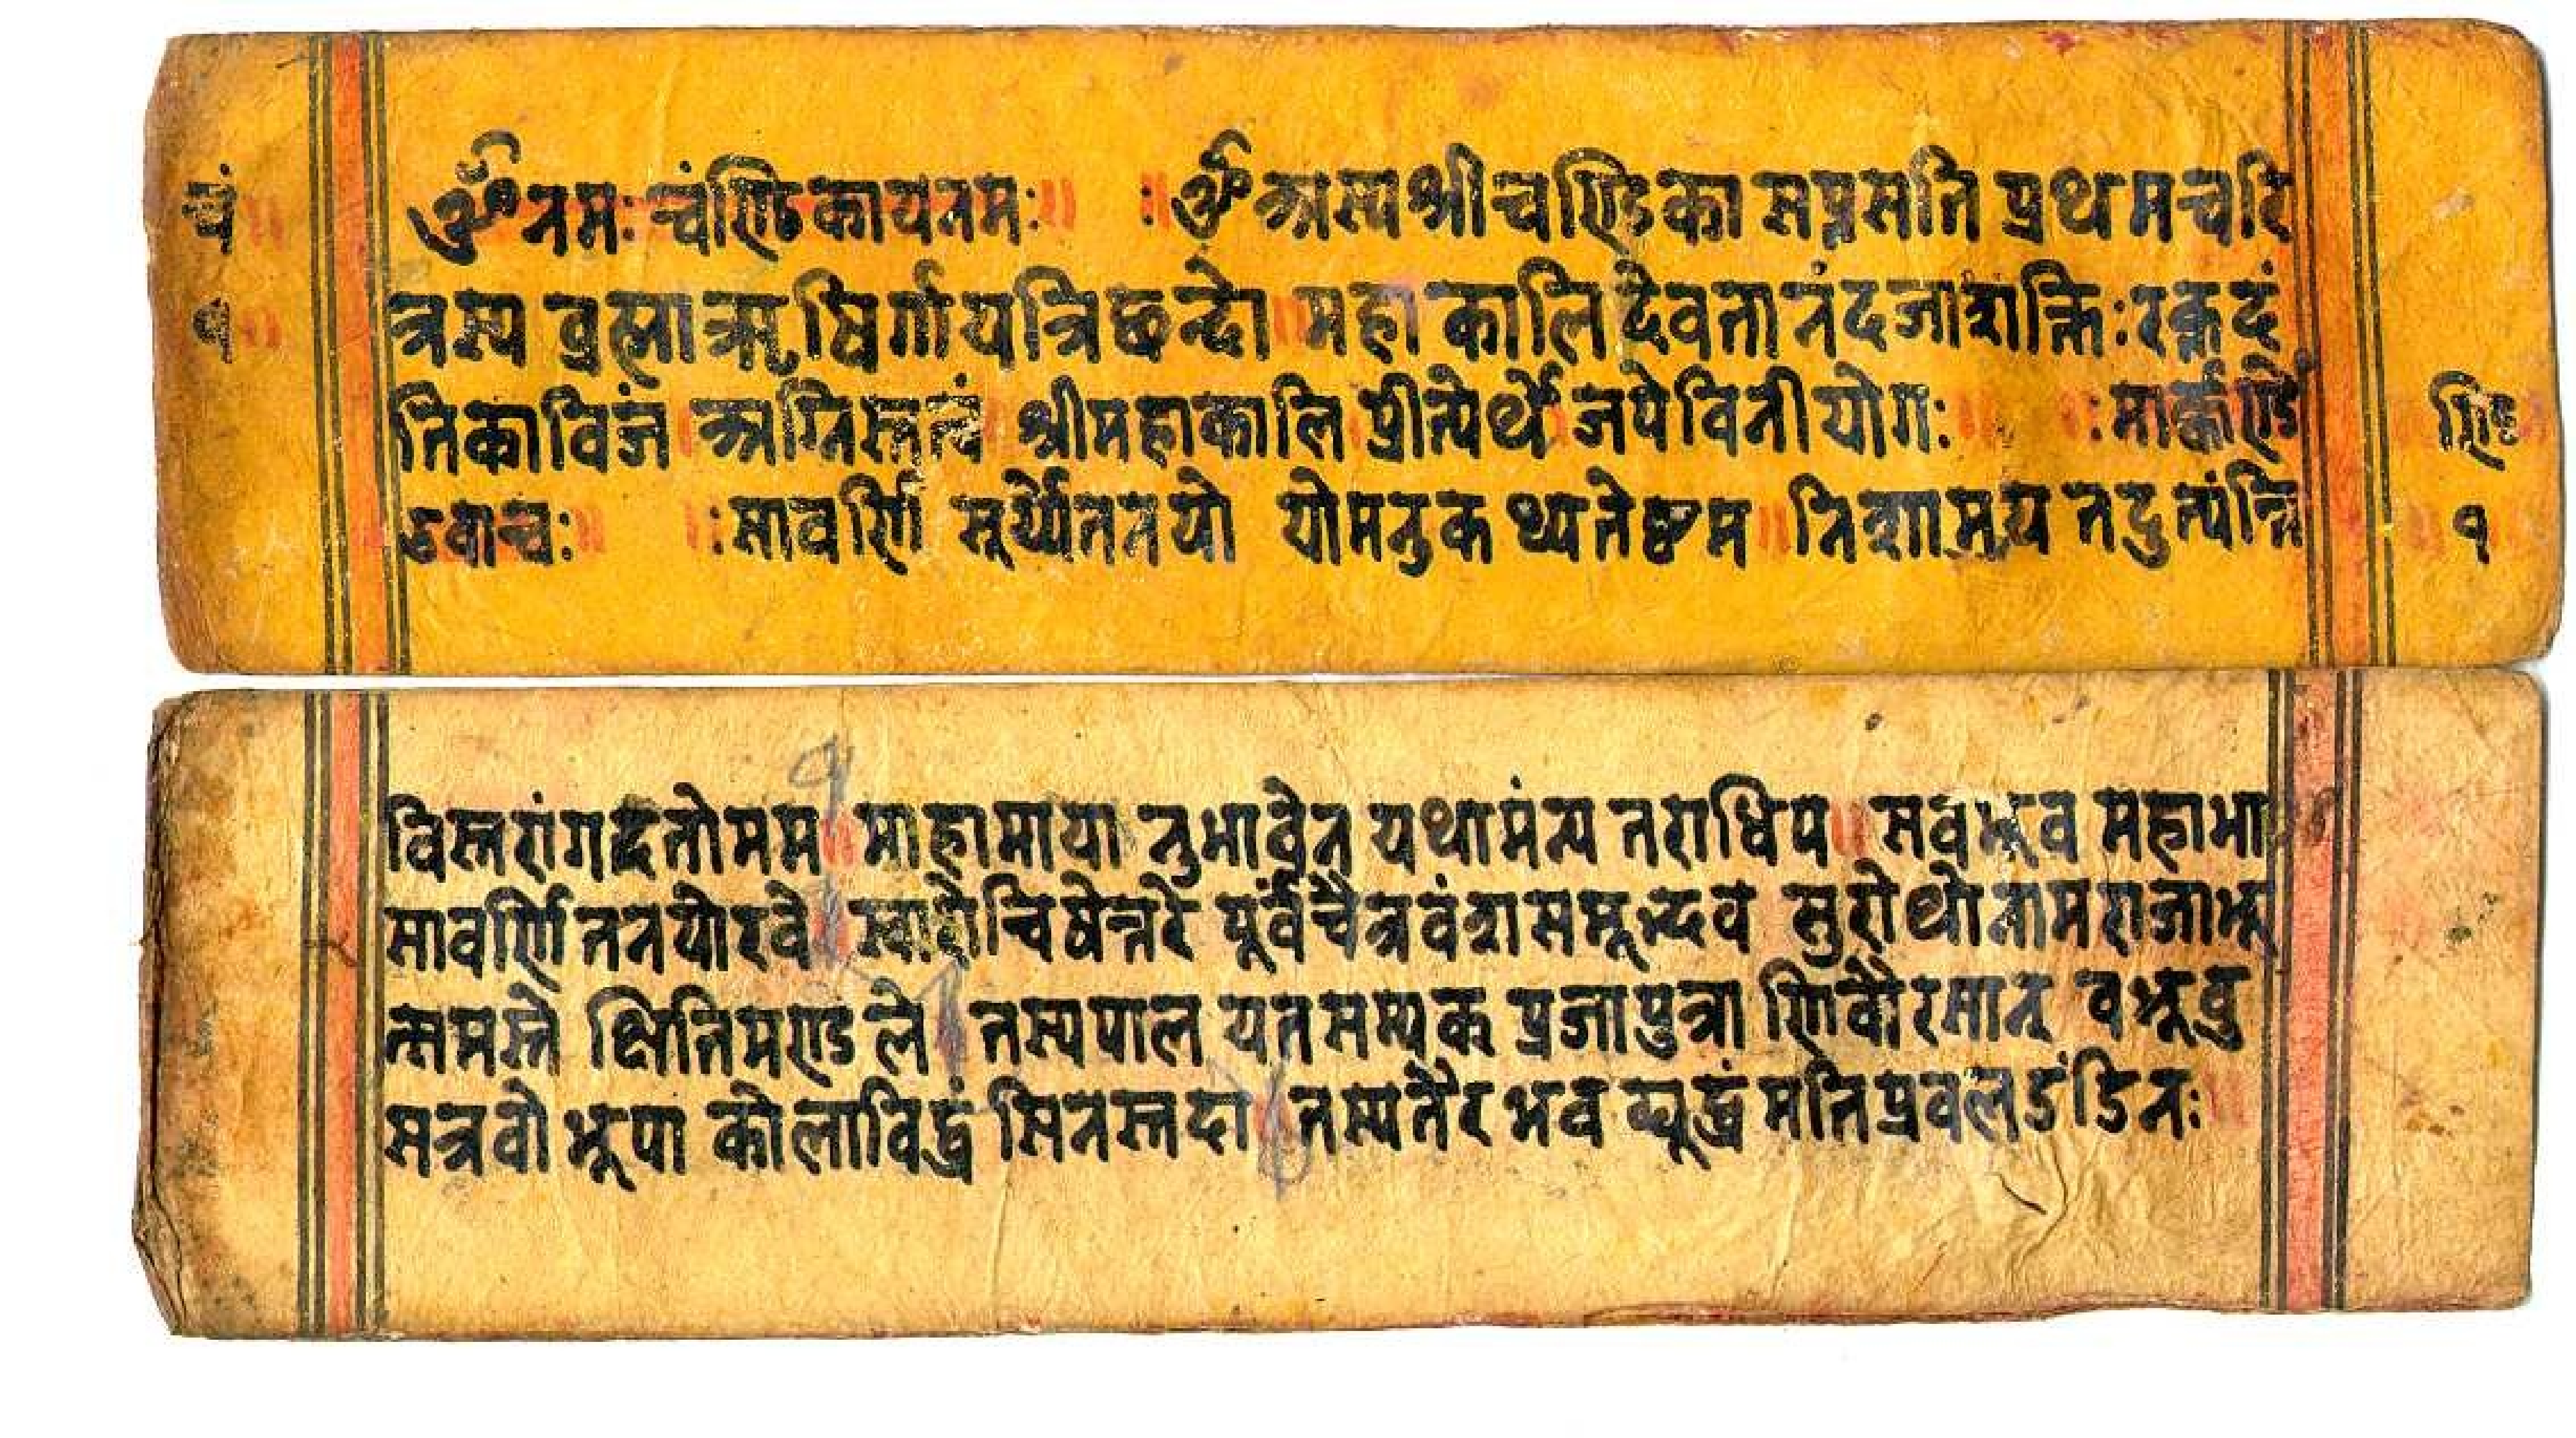 चं॥
१॥
ॐ नमः चंण्डिकायनमः॥ :ॐ अस्य श्रीचण्डिका सप्तसति प्रथमचरि
त्रस्य व्रह्मा ऋषिर्गायत्रिछन्दो॥ महाकालि देवता नंदजा शक्तिः रक्तदं
तिकाविजं॥ अग्निस्तत्वं॥ श्रीमहाकालि प्रीत्येर्थे जपे विनीयोगः॥ :मार्कण्डे
उवाचः॥ :सावर्णि सूर्य्योतनयो योमनुकथ्यतेष्टम॥ निशामय तदुत्पंत्तिं
ण्डि
१
विस्तरांगदतोमम॥ माहामाया नुभावेन यथामंन्य नराधिप॥ सवभूव महाभा
सावर्णि तनयोरवे॥ स्वारोचिषेन्तरे पूर्वंचैत्रवंशसमूद्भव सुरोथोनामराजाभू
त्समस्ते क्षितिमण्डले॥ तस्यपाल यतसम्यक प्रजापुत्रा णिवौरसान वभूवु
सत्रवो भूपा कोलाविद्धं सिनस्तदा॥ तस्यतैर भवद्युद्धंमतिप्रवलडंडिनः॥